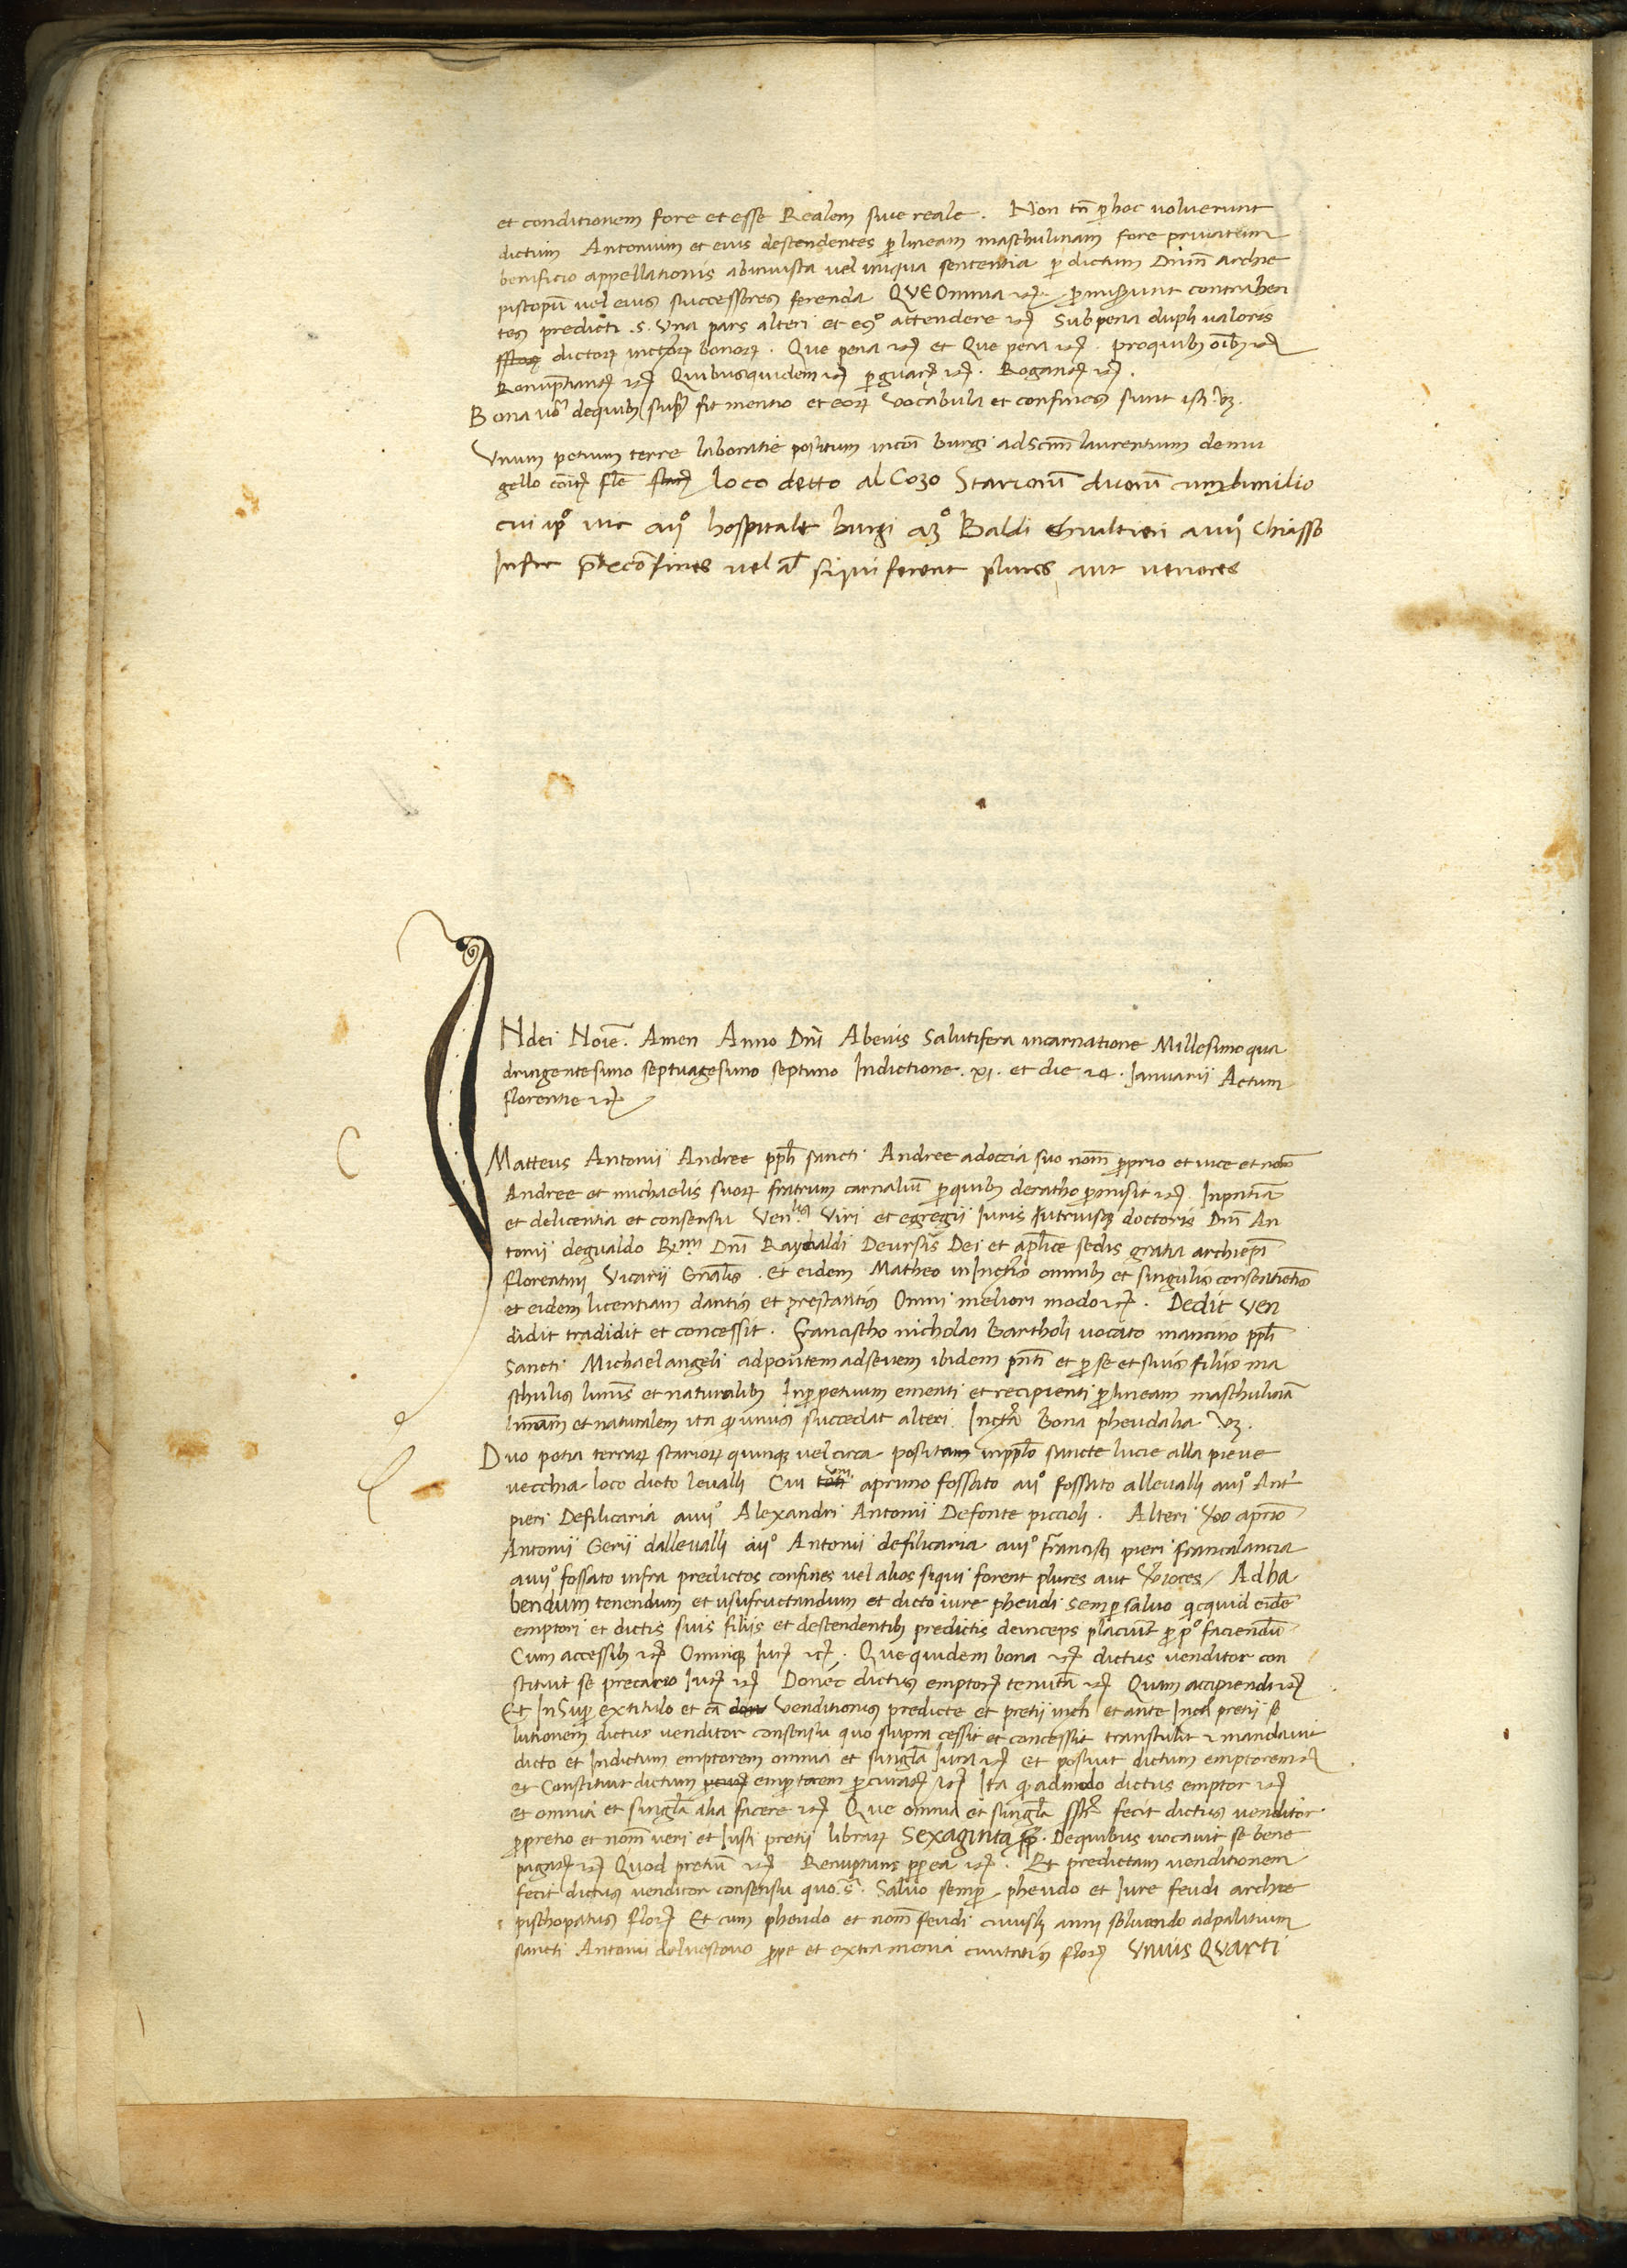 et conditionem fore et esse Realem sive reale. Non tn̄ p hoc voluerunt
dictum Antonium et eius descendentes p lineam maschulinam fore privatum
benificio appellationis ab iniusta vel iniqua sententia p dictum Dnm̄ archie
piscopū vel eius successores ferenda QVE Omnia etc. promiserunt contrahen
tes predicti .s. Una pars alteri et eo attendere etc Sub pena dupli valoris
dictorꝝ bonorꝝ. Que pena etc et Que pena etc. pro quibꝫ oībꝫ etc
Renuptiantꝭ etc Quibus quidem etc p guarꝭ etc. Rogantꝭ etc.
Bona vo de quibꝫ supra fit mentio et eorꝝ vocabula et confines sunt isti vꝫ.
Unum petium terre laboratie positum in coi burgi ad Scm̄ laurentium de mu
gello loco detto al Cozo Stariorū duorū
cui po vie a ijo hospitale burgi a 3o Baldi a iiijo chiasso
Infr confines vel al si qui forent plures aut veriores
IN dei Noīe. Amen Anno Dnī Ab eius salutifera incarnatione Millesimo qua
dringentesimo septuagesimo septimo Indictione .xi. et die 24. Ianuarii Actum
florentie etc
Matteus Antonii Andree ppli sancti Andree a doccia suo nom̄ proprio et vice et nom̄
Andree et michaelis suorꝝ fratrum carnaliū p quibꝫ de ratho promisit etc. In pn̄tia
et de licentia et consensu Ven. Viri et egregii Iuris utriusqꝫ doctoris Dnī An
tonii degualdo Rmi Dnī Raynaldi De ursis Dei et aplice sedis gratia archiepi
florentini Vicarii Gnalis. Et eidem Matheo in infrtis omnibꝫ et singulis consentientis
et eidem licentiam dantis et prestantis Omni meliori modo etc. Dedit ven
didit tradidit et concessit. Francischo nicholai Bartholi vocato mancino ppli
sancti Michael angeli ad pontem ad sevem ibidem pn̄ti et p se et suis filiis ma
schulis et naturalibꝫ In ppetuum ementi et recipienti p lineam maschulinā
et naturalem ita q unus succedat alteri. Infrta Bona pheudalia vꝫ.
Duo petia terrarꝝ stariorꝝ quinqꝫ vel circa posita in pplo sancte lucie alla pieve
vecchia loco dicto levalli Cui a primo fossato a ijo fossato allevalli a iijo Ant
pieri De filicaria a iiijo Alexandri Antonii De fonte piccioli. Alteri a primo
Antonii Gerii dallevalli a ijo Antonii de filicaria a iijo francisci pieri francalancia
a iiijo fossato infra predictos confines vel alios si qui forent plures aut veriores / Ad ha
bendum tenendum et usufructandum et dicto iure pheudi semp salvo quicquid eidē
emptori et dictis suis filiis et descendentibꝫ predictis deinceps placuit p po faciendū
Cum accessibꝫ etc Omniqꝫ Iure etc. Que quidem bona etc dictus venditor con
stituit se precario Iure etc Donec dictus emptor tenutā etc Quam accipiendi etc
Et In Sup ex titulo et cā venditionis predicte et pretii infrti et ante infrti pretii so
lutionem dictus venditor consensu quo supra cessit et concessit transtulit et mandavit
dicto et In dictum emptorem omnia et singula Iura etc Et posuit dictum emptorem etc
et Constituit dictum emptorem procuratorem etc Ita q admodo dictus emptor etc
et omnia et singula alia facere etc Que omnia et singula fecit dictus venditor
p pretio et nom̄ veri et Iusti pretii librarꝝ Sexaginta. De quibus vocavit se bene
pagatꝭ etc Quod pretiū etc Renuptians ppterea etc. Et predictam venditionem
fecit dictus venditor consensu quo .s. Salvo semp pheudo et Iure feudi archie
pischopatus florꝭ Et cum pheudo et nom̄ feudi cuiuslibꝫ anni solvendo ad palatium
sancti Antonii del vescovo prope et extra menia civitatis florꝭ Unius Quarti